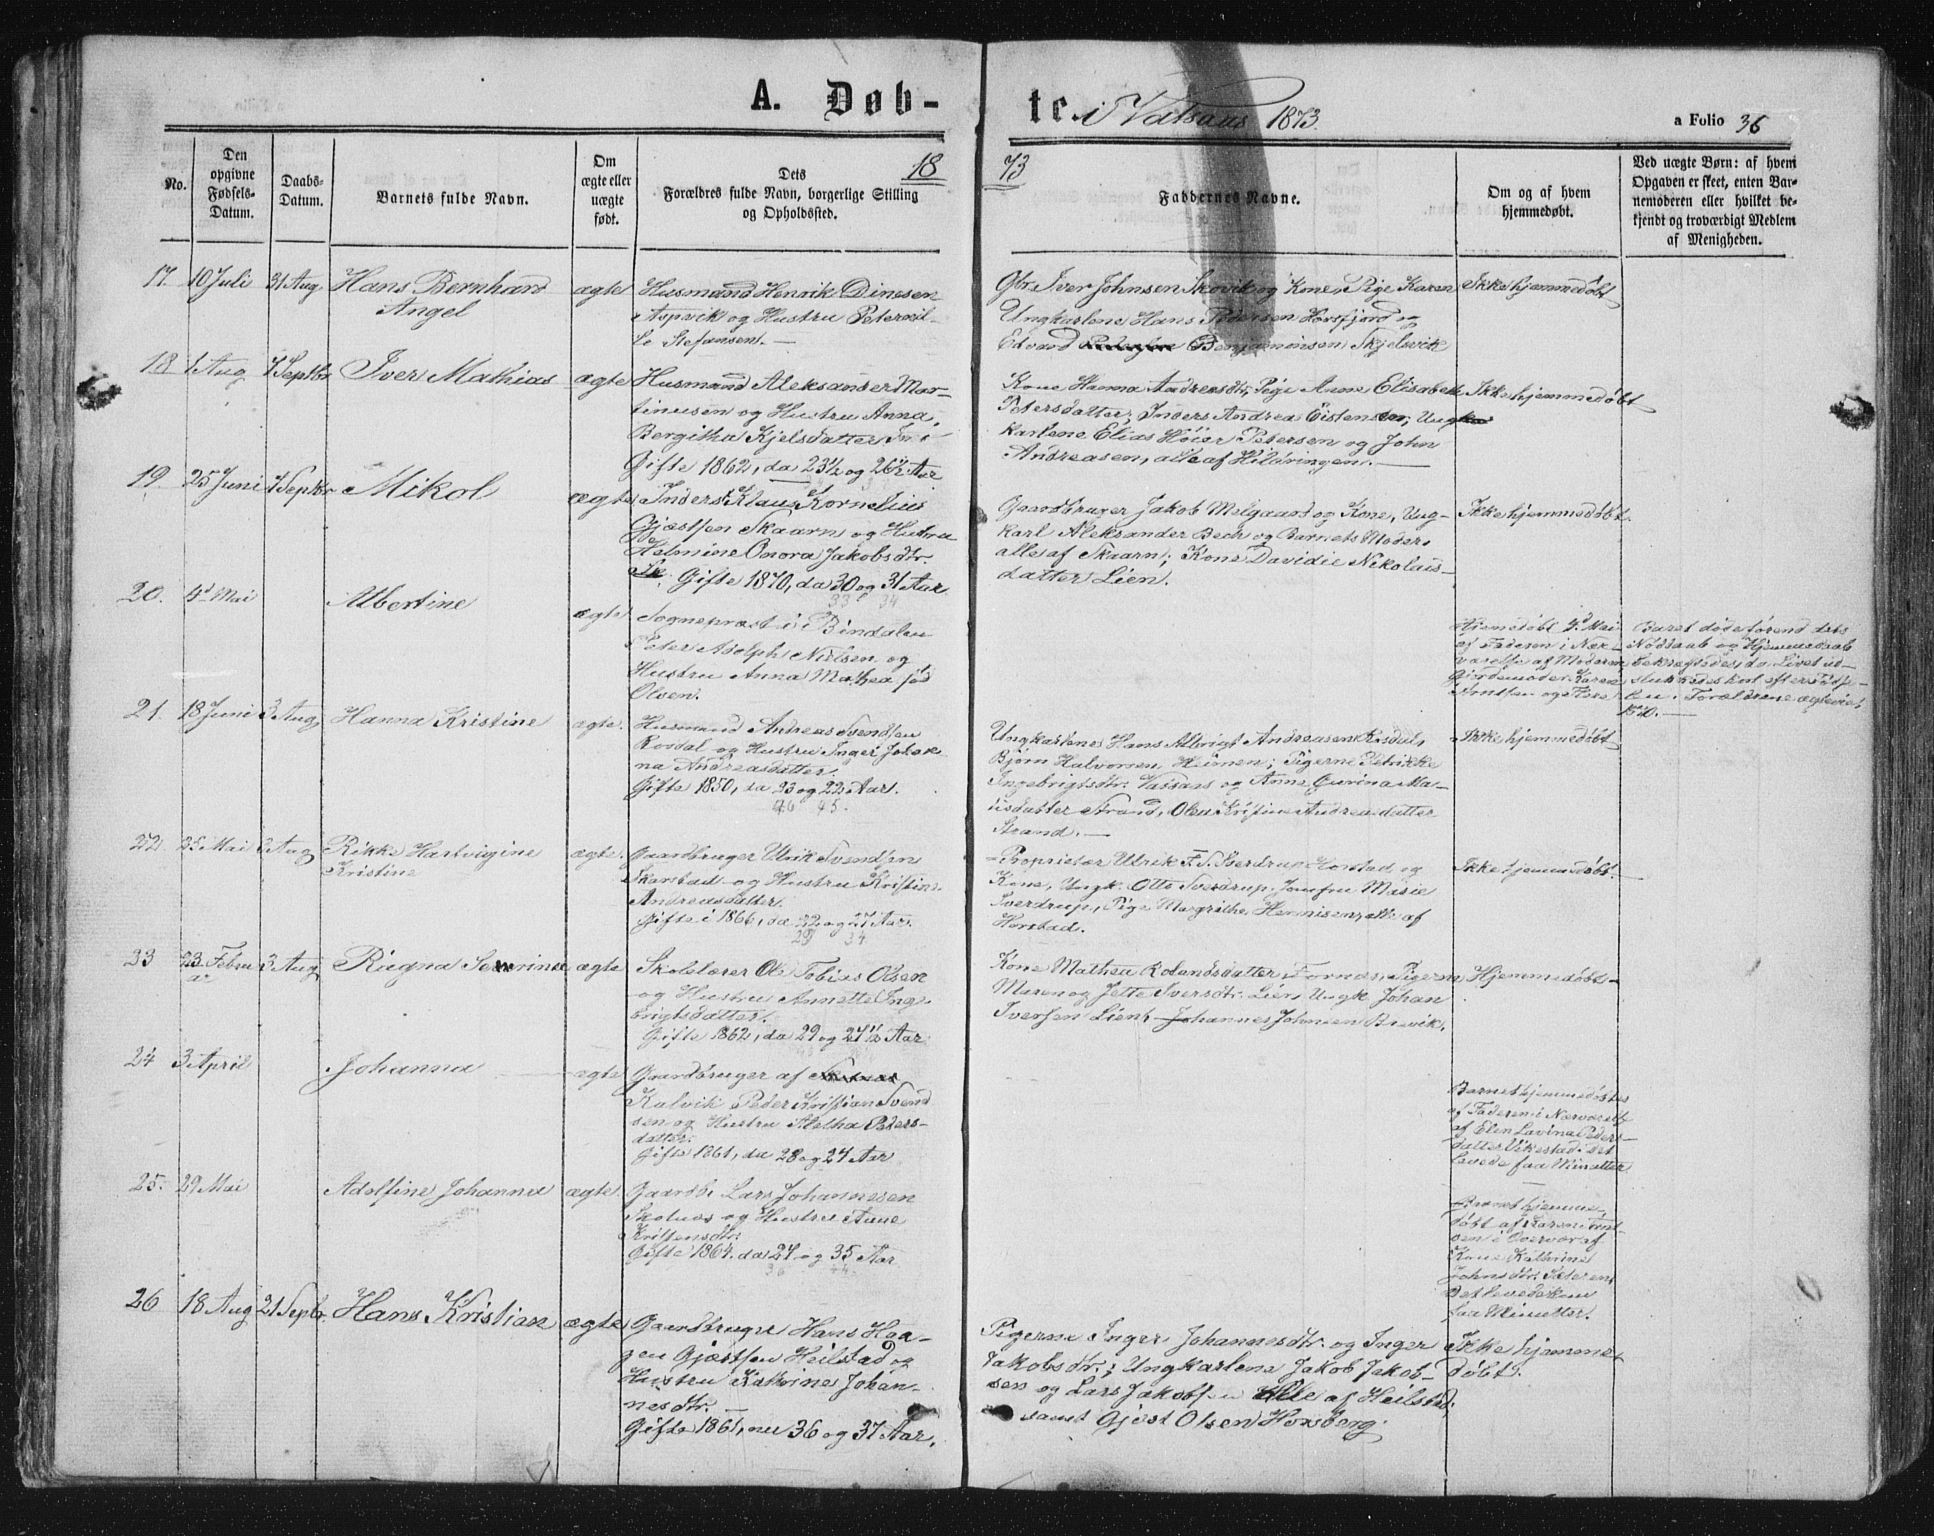 A. Døb-
te. i Vatsaas 1873.
a Folio 36
18
73
No.
Den opgivne Fødsels-Datum.
Daabs-Datum.
Barnets fulde Navn.
Om ægte eller uægte født.
Dets
Forældres fulde Navn, borgerlige Stilling
og Opholdssted.
Faddernes Navne.
Om og af hvem
hjemmedøbt.
Ved uægte Børn: af hvem
Opgaven er skeet, enten Bar-
nemoderen eller hvilket be-
kjendt og troværdigt Medlem
af Menigheden.
17. 10 Juli 31 Aug Hans Bernhard
Angel
ægte
Husmand Henrik Dinesen
Aspvik og Hustru Peternil-
le Stefansen. —
Gbr. Iver Johnsen Skovik og Kone, Pige Karen
Ungkarlene Hans Pedersen Horsfjord og
Edvard Benjaminsen Skjelsvik
Ikke hjemmedøbt
18 1 Aug 7 Septbr Iver Mathias
ægte
Husmand Aleksander Mar-
tinusen og Hustru Anna
Bergitha Kjelsdatter
Gifte 1862, da 23½ og 26½ Aar
Kone Hanna Andreasdtr, Pige Anne Elisabeth
Petersdatter, Inders Andrea Eistensen, Ung
karlene Elias Høier Petersen og John
Andreasen, alle af Hildringen. —
Ikke hjemmedøbt
19. 25 Juni 7 Septbr Mikol
ægte
Inderst Klaus Kornelius
Gjæstsen Skaarn og Hustru
Helmine Onora Jakobsdtr.
Gifte 1870, da 30 og 31 Aar
33 34
Gaardbruger Jakob Melgaard og Kone, Ung-
karl Aleksander Bech og Barnets Moder,
alle af Skaarn; Kone Davidie Nikolais-
datter Lien.
Ikke hjemmedøbt.
20. 4d Mai Albertine
ægte
Sognepræst i Bindalen
Peter Adolph Nielsen og
Hustru Anna Mathea fød
Olsen.
Hjemedøbt 4d Mai
af Faderen i Nær-
værelse af Moderen
Gjordemoder Karen
Arntsen og Flere
Barnet døde førend dets
Nødsaab og Hjemmedaab
bekræftedes, da Livet ud-
slukkedes kort efter Fødse-
len. Forældrene ægteviet
1870. —
21. 18 Juni 3 Aug Hanna Kristine
ægte.
Husmand Andreas Svendsen
Rosdal og Hustru Inger Johan
na Andreasdatter.
Gifte 1850, da 23 og 22 Aar.
46 45.
Ungkarlene Hans Albrigt Andreasen Rosdal,
Bjørn Halvorsen Heimen; Pigerne Petrikke
Ingebrigtsdtr. Vassaas og Anne Gurina Ma-
tisdatter Strand, Olea Kristine Andreasdatter
Strand. —
Ikke hjemmedøbt
22. 25 Mai 3 Aug Rikke Hartvigine
Kristine
ægte.
Gaardbruger Ulrik Svendsen
Skarstad og Hustru Kristine
Andreasdatter.
Gifte i 1866, da 22 og 27 Aar.
29 34
Proprietær Ulrik F. S. Sverdrup Horstad og
Kone, Ungk. Otto Sverdrup, Jomfru Marie
Sverdrup, Pige Margrithe Hermisen, alle af
Horstad.
Ikke hjemmedøbt.
23 23 Febru
ar
3 Aug Rugna Severinæ
ægte
Skolelærer Ole Tobias Olsen
og Hustru Annette Inge-
brigtsdatter.
Gifte 1862, da 29 og 24½ Aar
Kone Mathea Rolandsdatter Fornes, Pigerne
Maren og Jette Iversdtr. Lien, Ungk Johan
Iversen Lien, Johannes Johnsen Brevik.
Hjemmedøbt
24 3 April Johanna
ægte
Gaardbruger af
Kalvik Peder Kristian Svend
sen og Hustru Aletha Peders-
datter.
Gifte 1861, da 28 og 24 Aar
Barnet hjemmedøbtes
af Faderen i Nærværelse
af Elen Lavina Peders-
datter Vikestad: det
levede faa Minutter
25. 29 Mai Adolfine Johanna
ægte.
Gaardb. Lars Johannesen
Skotnes og Hustru Anne
Kristensdtr.
Gifte 1864, da 27 og 35 Aar
36 44.
Barnet hjemme-
døbt af Karen Arnt-
sen i Overvær af
Kone Kathrine
Johnsdtr. Sæteren
Det levede kun
faa Minutter.
26 18 Aug 21 Septbr. Hans Kristian
ægte
Gaardbruger Hans Haa-
gen Gjæstsen Heilstad og
Hustru Kathrine Johan-
nesdtr. —
Gifte 1861, nu 36 og 37 Aar.
Pigerne Inger Johannesdtr. og Inger
Jakobsdtr.; Ungkarlene Jakob Jakob-
sen og Lars Jakobsen alle af Heilstad,
samt Gjæst Olsen Horsberg.
Ikke hjemme
døbt.